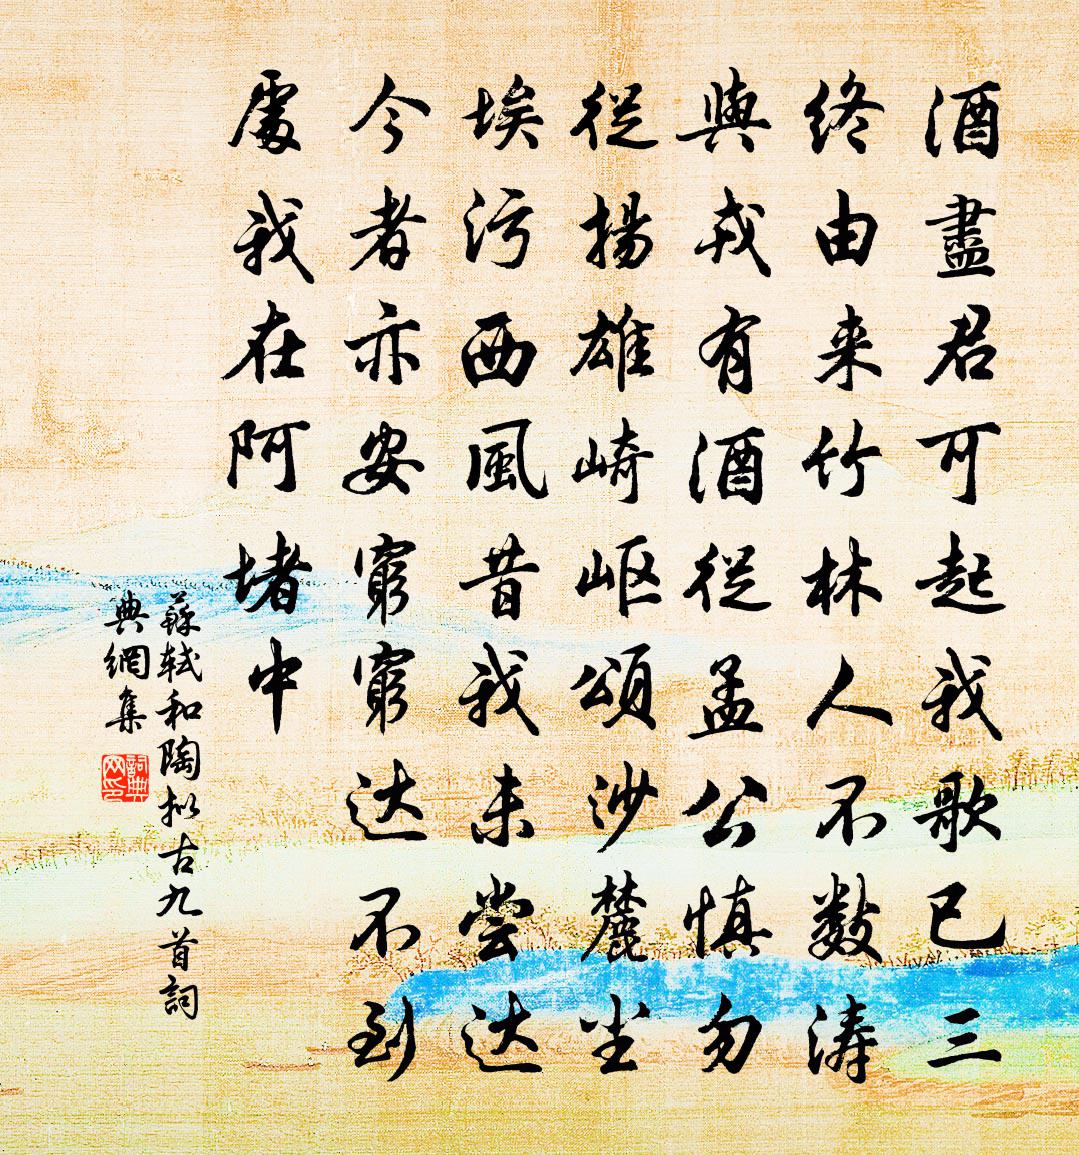 酒盡君可起我歌已三
終由来竹林人不數濤
與戎有酒從孟公慎勿
從揚雄崎岖頌沙麓尘
埃污西風昔我未尝达
今者亦安窮窮达不到
處我在阿堵中
蘇軾和陶拟古九首詞
典網集
詞典网印